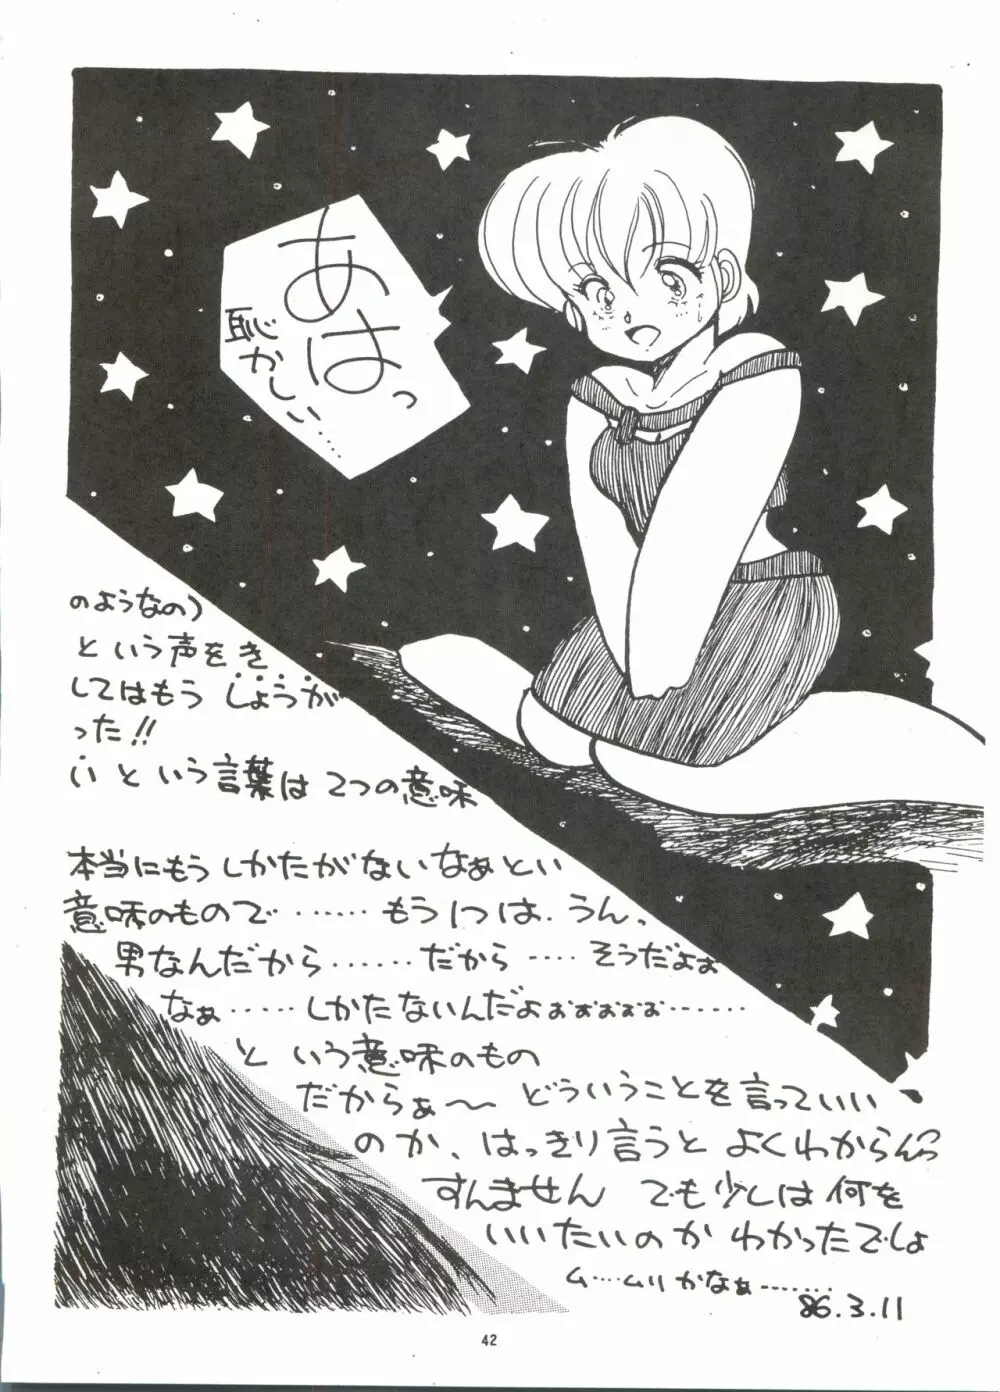 あはっ
恥かしい……
のようなの)
という声をき
してはもう しょうが
った!!
いという言葉は2つの意味
本当にもうしかたがないなぁとい
意味のもので……もう1つは、うんっ
男なんだから……だから……そうだよぉ
なぁ……しかたないんだよぉぉぉぉぉ……
という意味のもの
だからぁ〜 どういうことを言っていい
のか、はっきり言うと よくわからんっ
すんません でも少しは何を
いいたいのか わかったでしょ
ム…ムリかなぁ……
86.3.11
42